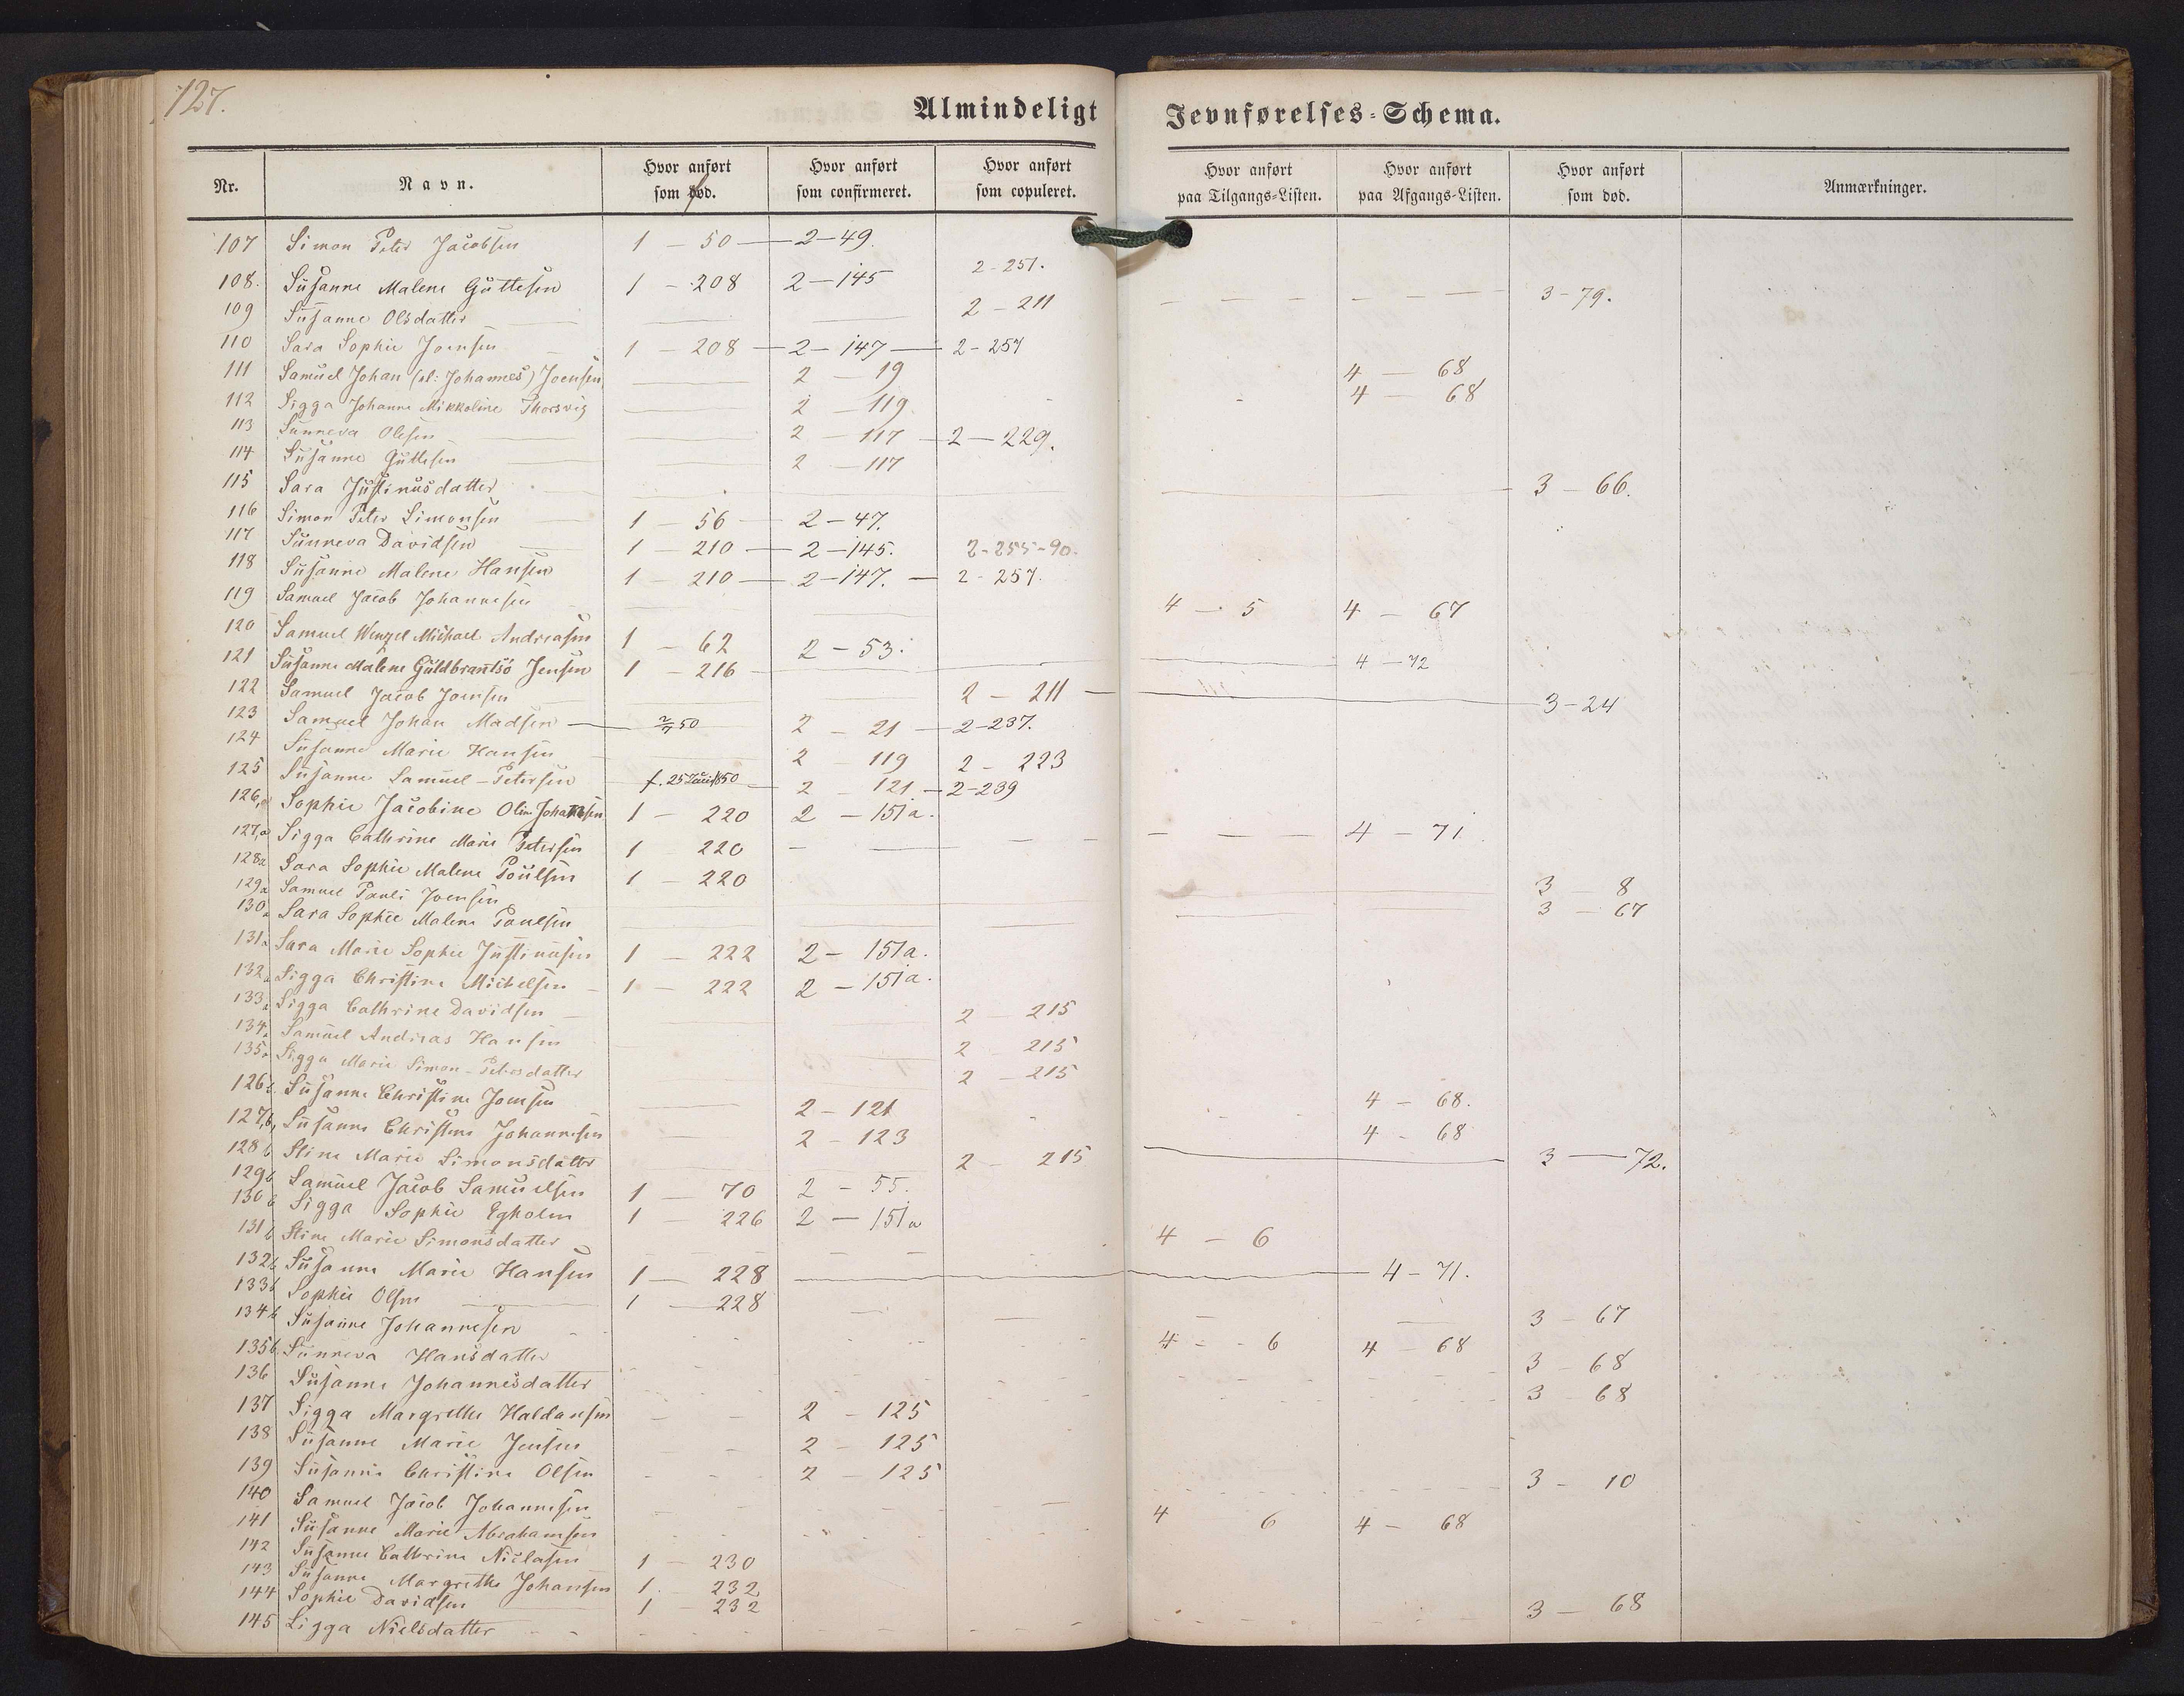 127.
Almindeligt Jevnførelses-Schema.
Nr. Navn. Hvor anført som død. Hvor anført som confirmeret. Hvor anført som copuleret. Hvor anført paa Tilgangs-Listen. Hvor anført paa Afgangs-Listen. Hvor anført som død. Anmærkninger.
107 Simon Peter Jacobsen 1 - 50 - 2-49.
108. Susanne Malene Guttesen 1 - 208 2-145 2-251.
109 Susanne Olsdatter 2 - 211 3-79.
110 Sara Sophie Joensen 1 - 208 - 2-147 - 2-257
111 Samuel Johan (el: Johannes) Joensen 2 - 19 4 - 68
112 Sigga Johanne Mikkoline Thorsvig 2 - 119 4 - 68
113 Sunneva Olesen 2 - 117 - 2 - 229.
114 Susanne Guttesen 2 - 117
115 Sara Justinusdatter 3 - 66.
116 Simon Peter Simonsen 1 - 56 - 2-47.
117 Sunneva Davidsen 1 - 210 - 2-145. 2-255-90.
118 Susanne Malene Hansen 1 - 210 - 2-147. - 2-257.
119 Samuel Jacob Johannesen 4 - 5 4 - 67
120 Samuel Wenzel Michael Andreasen 1 - 62 2 - 53.
121 Susanne Malene Guldbrantsø Jensen 1 - 216 4 - 72
122 Samuel Jacob Joensen 2 - 211 - 3-24
123 Samuel Johan Madsen 2/7 50 2 - 21 - 2-237.
124 Susanne Marie Hansen 2 - 119 2 - 223
125 Susanne Samuel-Petersen f. 25 Juni 1850 2 - 121 - 2-239
126,a Sophie Jacobine Oline Johansen 1 - 220 2 - 151a.
127,a Sigga Cathrine Marie Petersen 1 - 220 4 - 71
128a Sara Sophie Malene Poulsen 1 - 220
129a Samuel Pauli Joensen 3 - 8
130a Sara Sophie Malene Poulsen 3 - 67
131a Sara Marie Sophie Justinusen 1 - 222 2 - 151a.
132a Sigga Christine Michelsen 1 - 222 2 - 151a.
133a Sigga Cathrine Davidsen 2 - 215
134a Samuel Andreas Hansen 2 215
135a Sigga Marie Simon-Petersdatter 2 - 215
126b. Susanne Christine Joensen 2 - 121 4 - 68.
127,b, Susanne Christine Johannesen 2 - 123 4 - 68
128b Stine Marie Simonsdatter 2 - 215 3 - 72.
129b Samuel Jacob Samuelsen 1 - 70 2 - 55.
130b Sigga Sophie Egholm 1 - 226 2 - 151a
131b Stine Marie Simonsdatter 4 - 6
132b Susanne Marie Hansen 1 - 228 4-71.
133b Sophie Olsen 1 - 228
134b Susanne Johannesen 3 - 67
135b Sunneva Hansdatter 4 - 6 4 - 68
136 Susanne Johannesdatter 3 - 68
3 - 68
137 Sigga Margrethe Haldansen 2 - 125
138 Susanne Marie Jensen 2 - 125
139 Susanne Christine Olsen 2 - 125
140 Samuel Jacob Johannesen 3 - 10
141 Susanne Marie Abrahamsen 4 6 4 - 68
142 Susanne Cathrine Niclasen 1 - 230
143 Susanne Margrethe Johansen 1 - 232
144 Sophie Davidsen 1 - 232
145 Sigga Nielsdatter 3 - 68